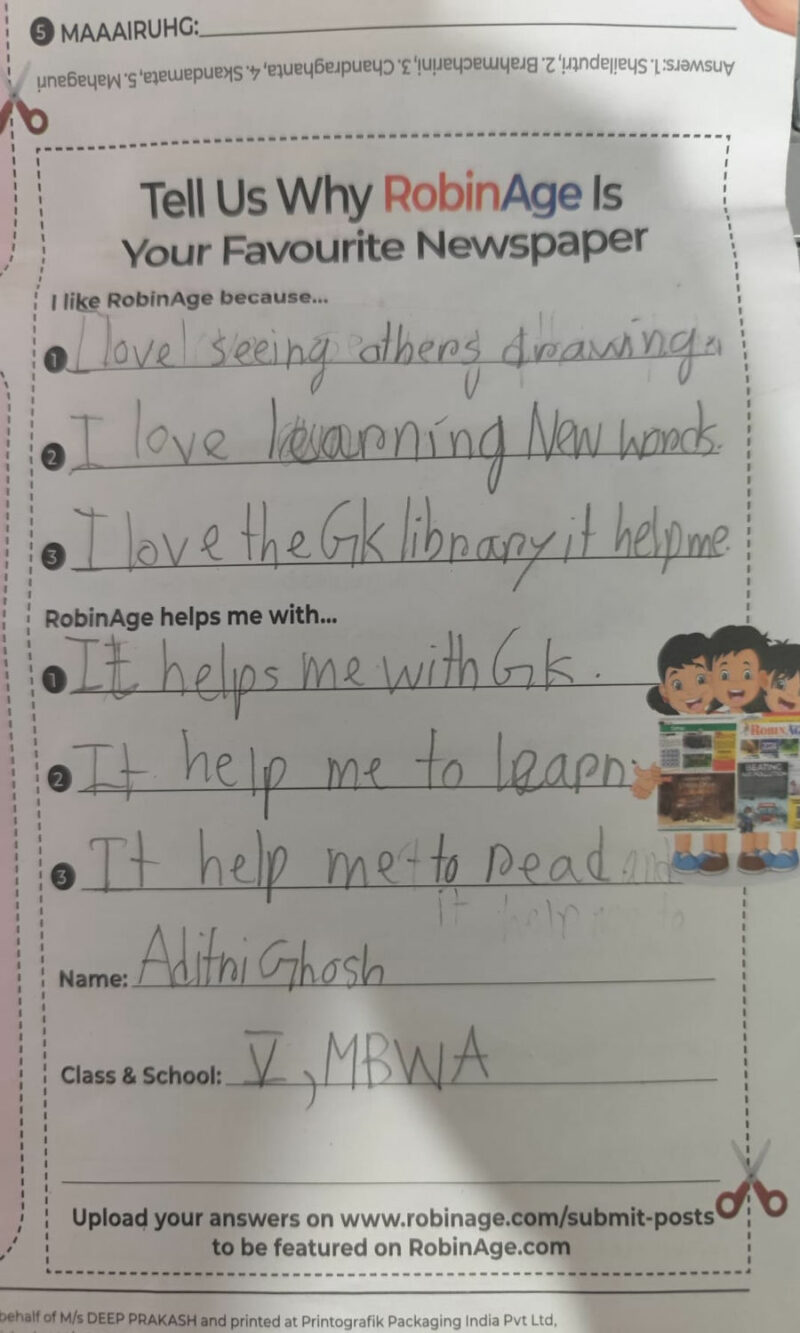 5 MAAAIRUHG:
Answers: 1. Shailaputri, 2. Brahmacharini, 3. Chandraghanta, 4. Skandamata, 5. Mahagauri
Tell Us Why RobinAge Is
Your Favourite Newspaper
I like RobinAge because...
1 I love seeing others drawing.
2 I love learning New words.
3 I love the Gk library it help me.
RobinAge helps me with...
1 It helps me with Gk.
2 It help me to learn.
3 It help me to read and
it help me to
Name: Aditri Ghosh
Class & School: V, MBWA
Upload your answers on www.robinage.com/submit-posts
to be featured on RobinAge.com
behalf of M/s DEEP PRAKASH and printed at Printografik Packaging India Pvt Ltd,